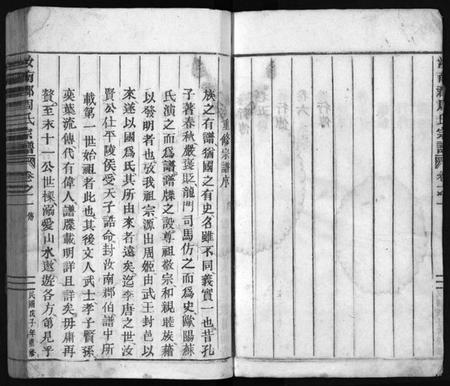 重修宗譜序
族之有譜猶國之有史名雖不同義實一也昔孔
子著春秋嚴褒貶龍門司馬仿之而爲史歐陽蘇
氏演之而爲譜譜牒之設尊祖敬宗和視睦族藉
以發明者也攷我祖宗源出周姬由武王封邑以
來遂以國爲氏其所由來者遠矣迄李唐之世汝
賢公仕平陵侯受天子誥命封汝南郡伯譜中所
載第一世始祖者此也其後文人武士孝子賢孫
奕葉流傳代有偉人譜牒載明詳且詳矣毋庸再
贅至末十一公世極溺愛山水遨遊各方第見乎
汝南郡周氏宗譜 卷之一
民國戊子年重修